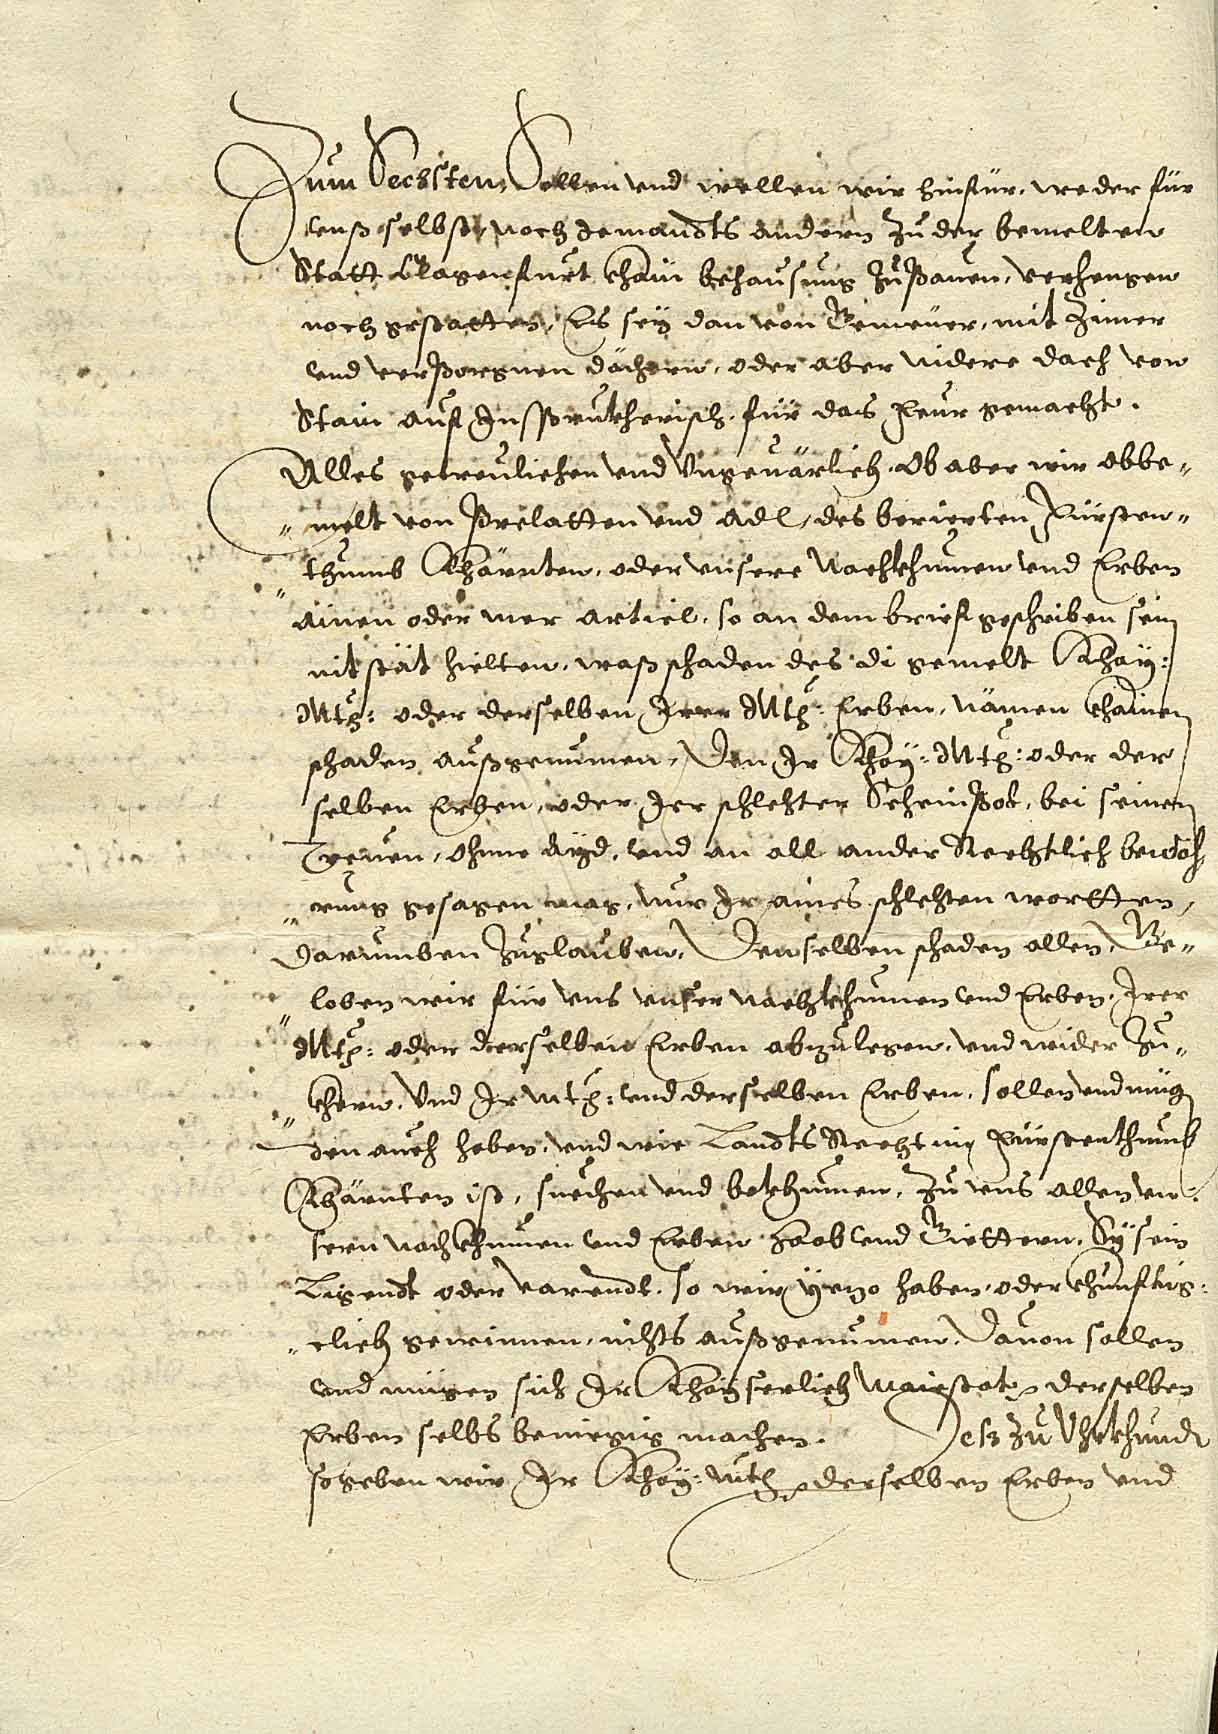 Zum Sechsten, Sollen vnd wellen wir hinfür, weder für
vnß selbst, noch Jemandts andern Zu der bemelten
Statt Clagenfurt khain behausung Zupauen, verhengen
noch gestatten, Es seÿ dan von Gemeüer, mit Zimer
vnd verporgnen dächern, oder aber nidere dach von
Stain auf Jnsprukherisch, für das Feur gemacht.
Alles getreulichen vnd Vngeuärlich. Ob aber wir obbe-
melt von Prelatten vnd Adl, des berierten Fürsten-
thumb Khärnten, oder vnsere Nachkhumen vnd Erben
ainen oder mer Articl, so an dem brief geschriben sein
nit stät hielten, waß schaden des di gemelt Khaÿ:
Mtӱ: oder derselben Jrer Mtӱ: Erben, nämen khainen
schaden außgenumen, Den Jr Khaÿ: Mtӱ: oder der
selben Erben, oder Jer schlehter Scheinpot, bei seinen
Treuen, ohnne Aÿd, vnd an all ander Rechtlich bewäh
rung gesagen mag, nur Jr aines schlehten wortten,
darumben Zuglauben, Denselben schaden allen, Ge-
loben wir für vns vnser nachkhumen vnd Erben, Jrer
Mtӱ: oder derselben Erben abzulegen, vnd wider Zu-
khern, Vnd Jr Mtӱ: vnd derselben Erben, sollen vnd müg
den auch haben, vnd wie Landts Recht im Fürstenthumb
Khärnten ist, suechen vnd bekhumen, Zu vns allen vn-
sern nachkhumen vnd Erben Haab vnd Güettern, Sÿ sein
Ligendt oder varendt, so wir ÿezo haben, oder khunftig-
clich gewinnen, nichts außgenumen, Dauon sollen
vnd mügen sich Jr Khaÿserlich Maiestat derselben
Erben selbs beniegig machen. Deß Zu Vhrkhundt
so geben wir Jr Khaÿ: Mtӱ derselben Erben vnd